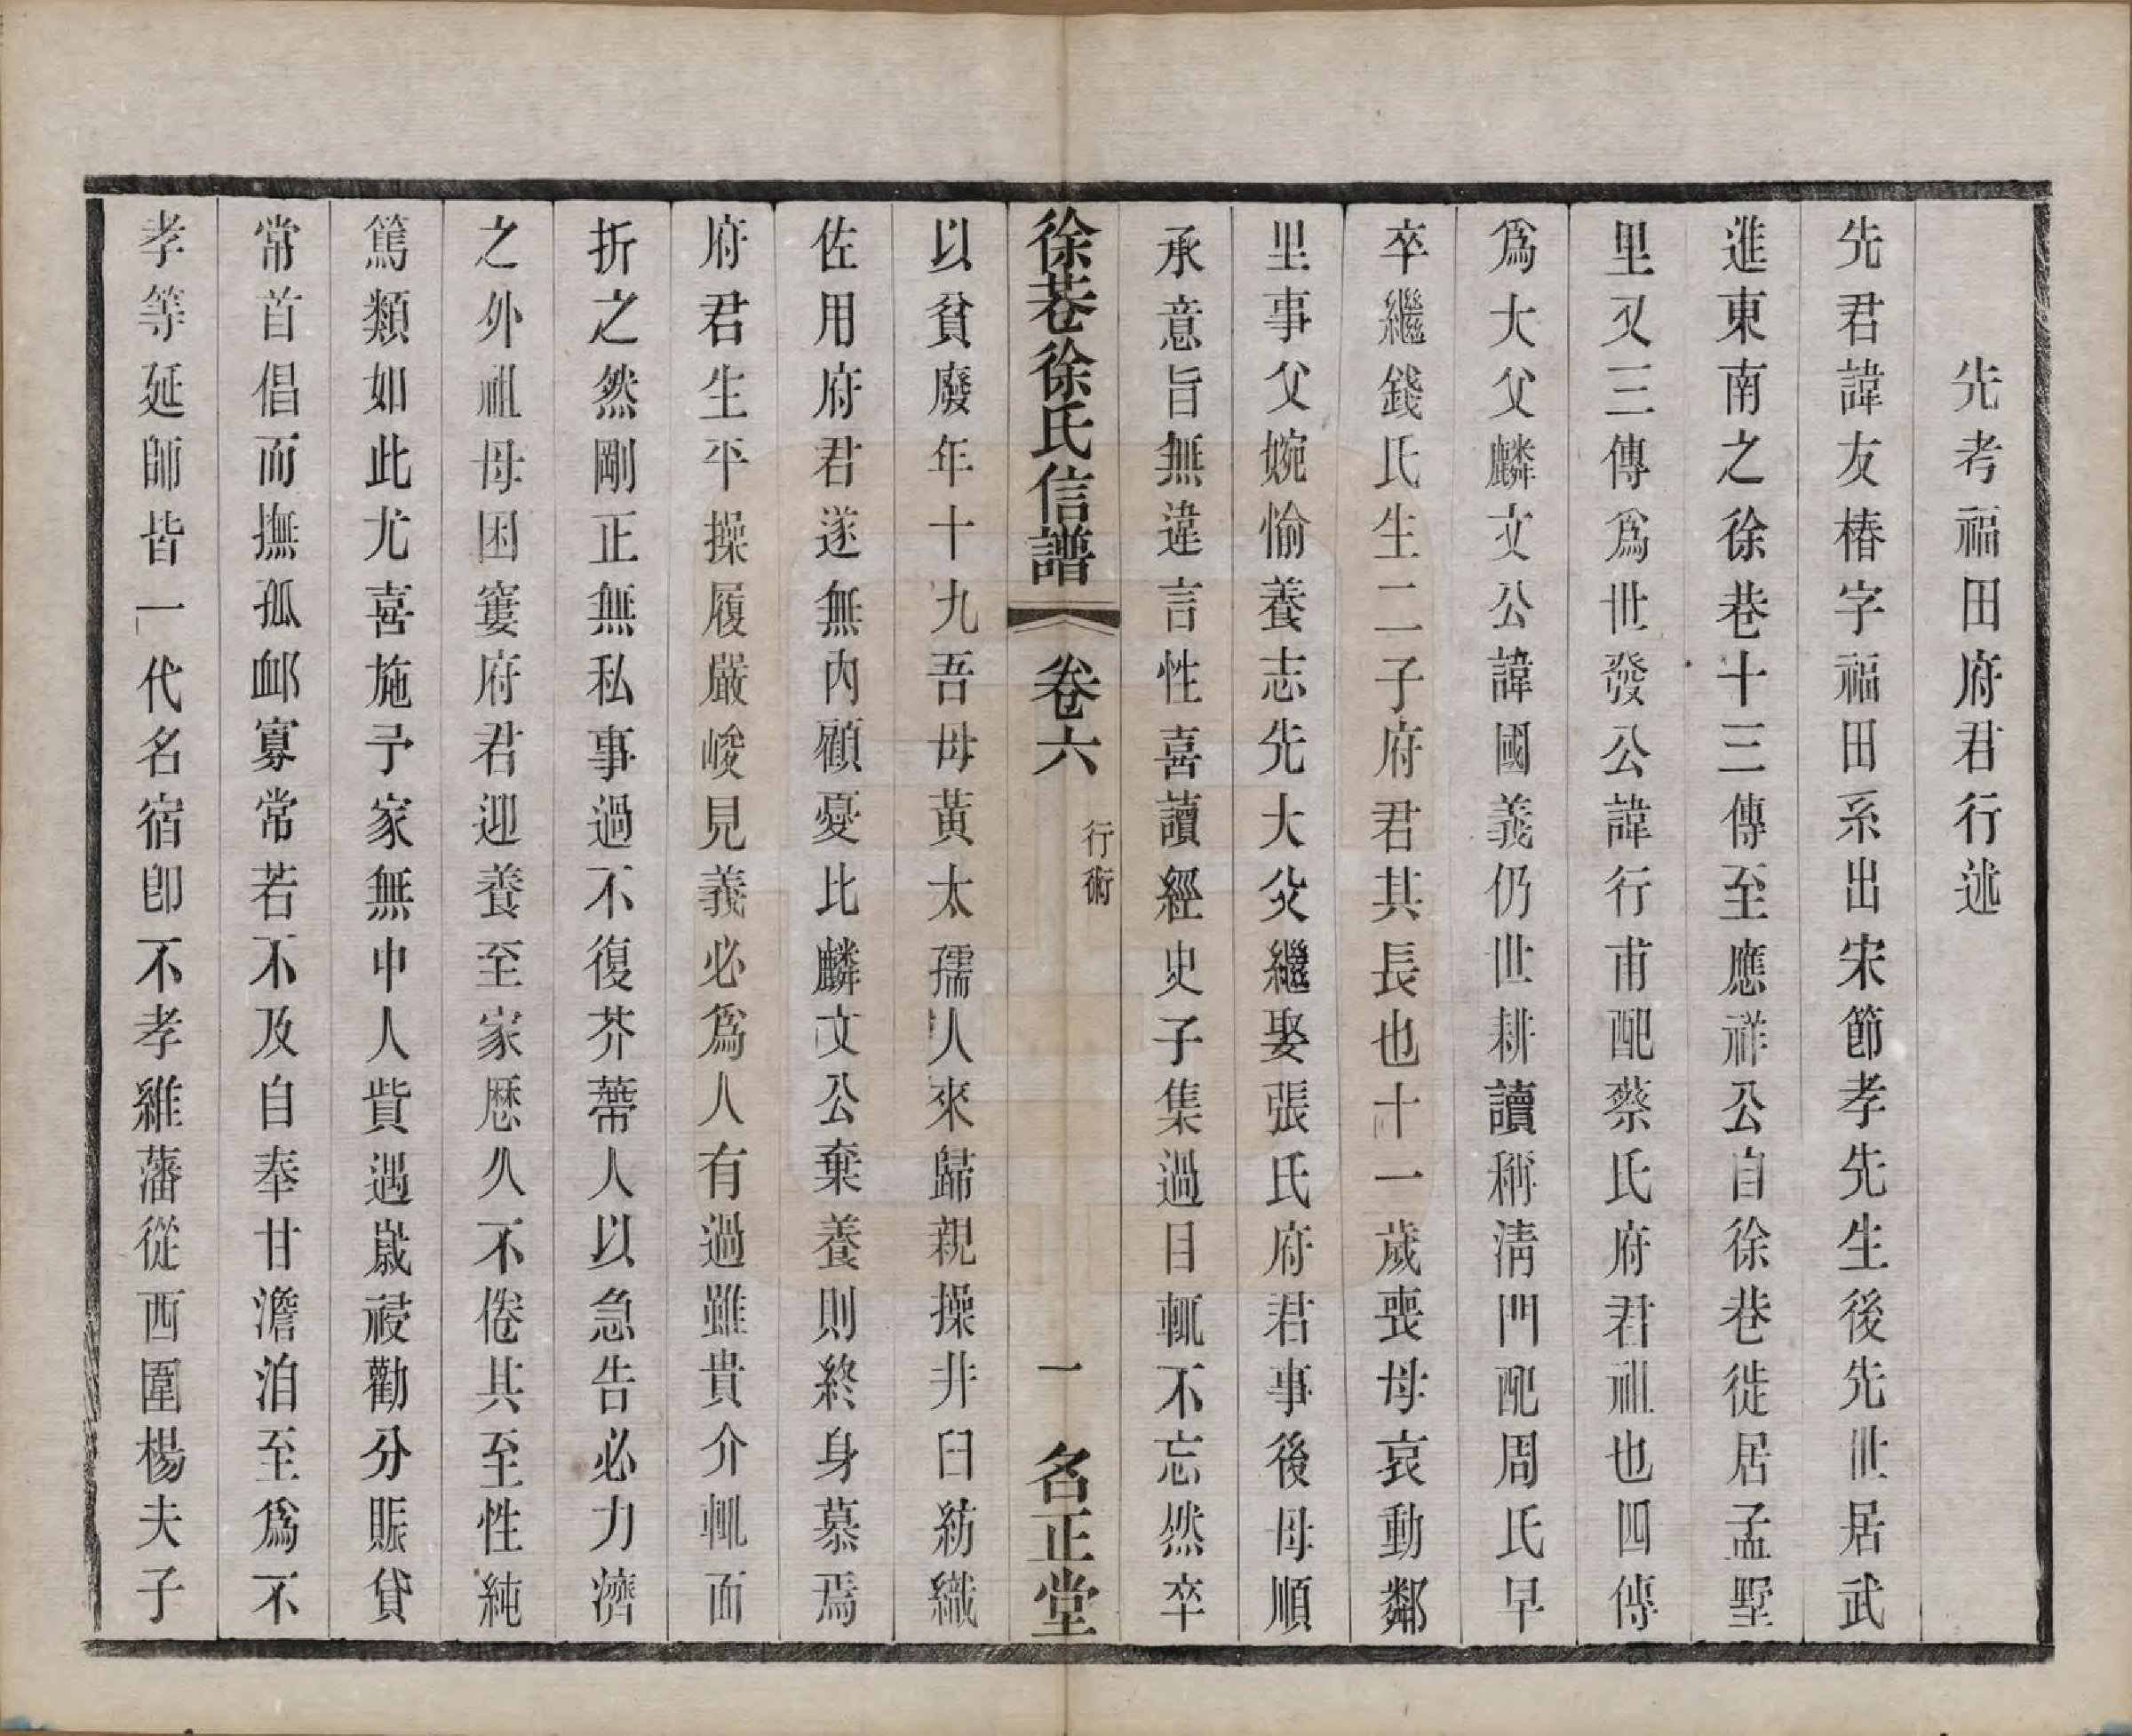 先考福田府君行述
先君諱友椿字福田系出宋節孝先生後先世居武
進東南之徐巷十三傳至應祥公自徐巷徙居孟墅
里又三傳爲世發公諱行甫配蔡氏府君祖也四傳
爲大父麟文公諱國義仍世耕讀稱淸門配周氏早
卒繼錢氏生二子府君其長也十一歲喪母哀動鄰
里事父婉愉養志先大父繼娶張氏府君事後母順
承意旨無違言性喜讀經史子集過目輒不忘然卒
徐巷徐氏信譜 卷六 行術 一 名正堂
以貧廢年十九吾母黃太孺人來歸親操井臼紡織
佐用府君遂無內顧憂比麟文公棄養則終身慕焉
府君生平操履嚴峻見義必爲人有過雖貴介輒面
折之然剛正無私事過不復芥蔕人以急告必力濟
之外祖母困窶府君迎養至家歷久不倦其至性純
篤類如此尤喜施予家無中人貲遇嵗祲勸分賑貸
常首倡而撫孤卹寡常若不及自奉甘澹泊至爲不
孝等延師皆一代名宿卽不孝維藩從西圍楊夫子